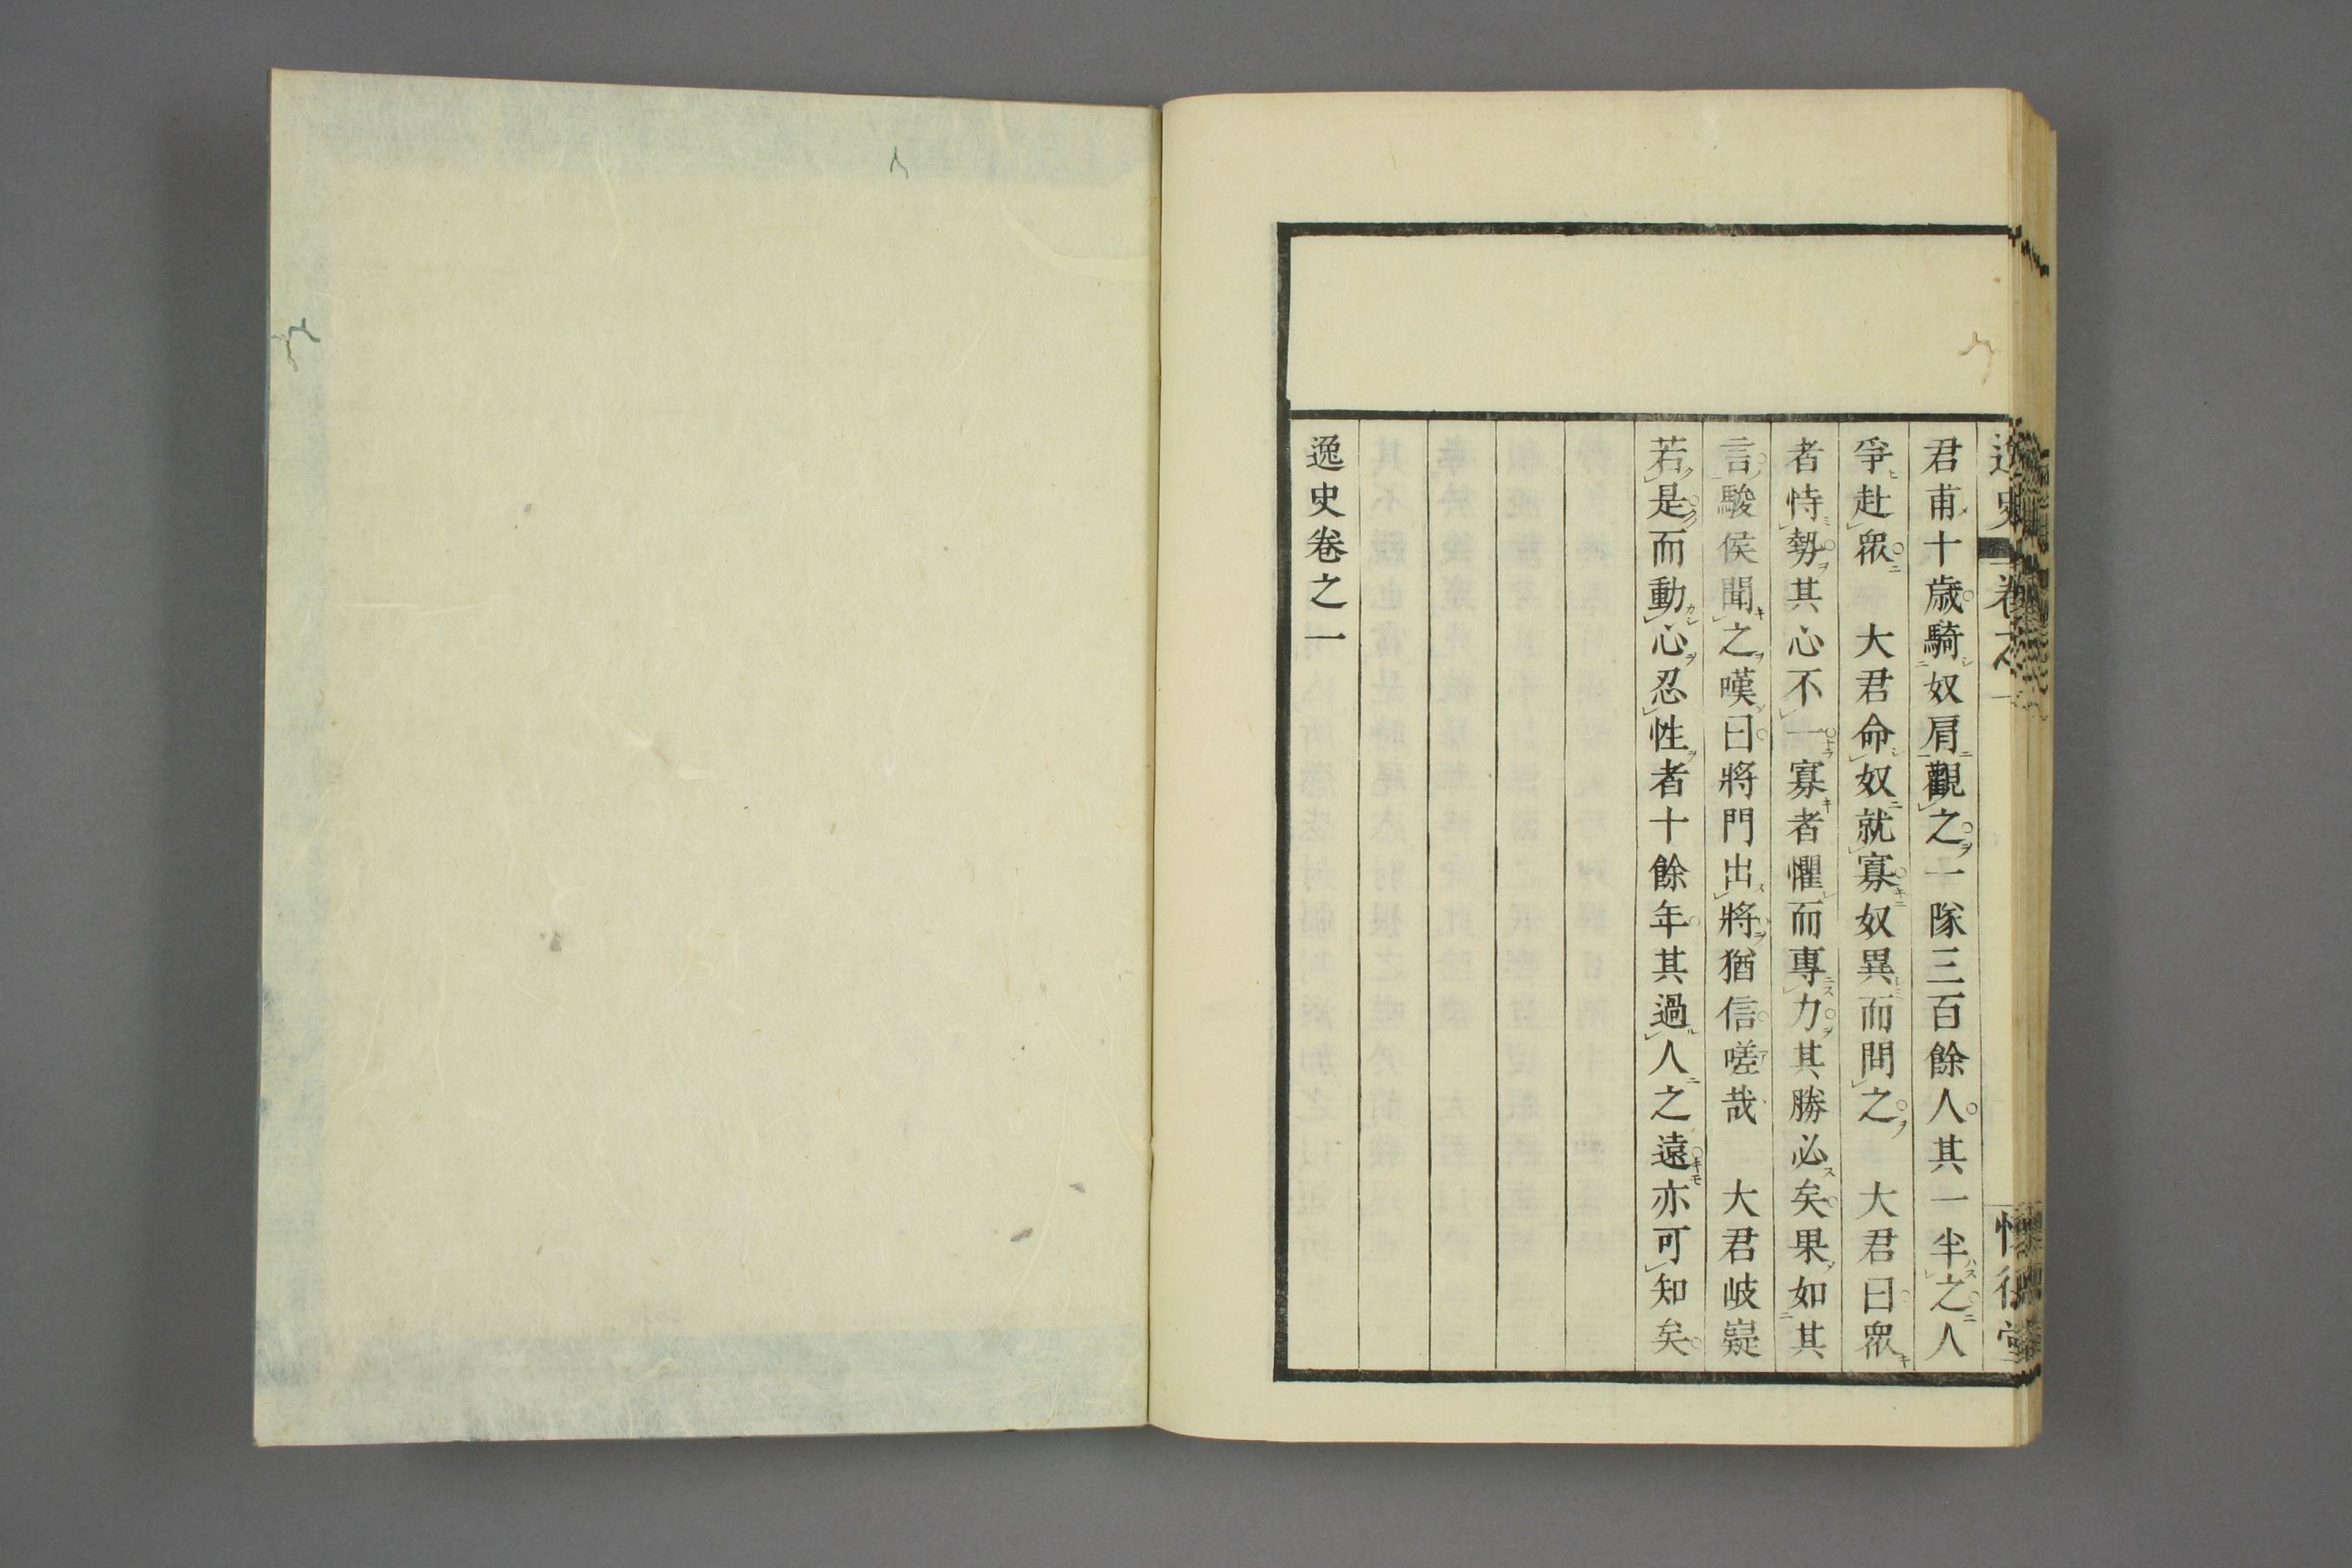 君甫十歳騎奴肩觀之一隊三百餘人其一半之人
爭赴衆　大君命奴就寡奴異而問之　大君曰衆
者恃勢其心不一寡者懼而專力其勝必矣果如其
言駿侯聞之嘆曰將門出將猶信嗟哉　大君岐嶷
若是而動心忍性者十餘年其過人之遠亦可知矣
逸史卷之一